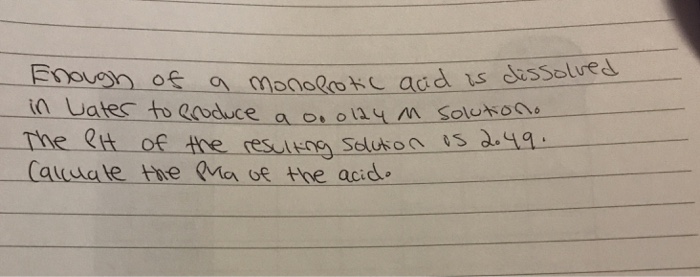 Enough of a monoprotic acid is dissolved
in water to produce a 0.0124 M solution.
The pH of the resulting solution is 2.49.
Calculate the pKa of the acid.